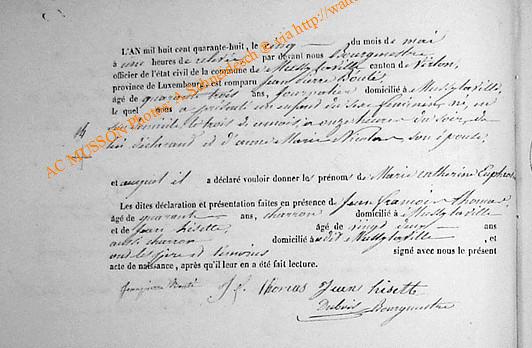 L'AN mil huit cent quarante-huit, le cinq du mois de mai
à une heures de relevée par devant nous Bourgmestre
officier de l'état civil de la commune de Mussy-la-ville canton de Virton,
province de Luxembourg, est comparu Jean Pierre Bouté
âgé de quarante trois ans, domicilié à Mussy-la-ville,
lequel nous a présenté un enfant du sexe féminin, né, en
son domicile le trois de mai à onze heures du soir, de
lui déclarant et d'anne Marie Nicolas son épouse,
et auquel il a déclaré vouloir donner les prénoms de Marie Catherine
Les dites déclaration et présentation faites en présence de Jean françois thomas
âgé de quarante ans, charron domicilié à Mussy-la-ville
et de Jean Lisette, âgé de vingt ans
aussi charron domicilié audit Mussy-la-ville, et
ont les père et témoins signé avec nous le présent
acte de naissance, après qu'il leur en a été fait lecture.
Jean pierre Bouté J. f. Thomas Jean Lisette
Bourgmestre
AC MUSSON Photo A. Schmedesch @ aria http://